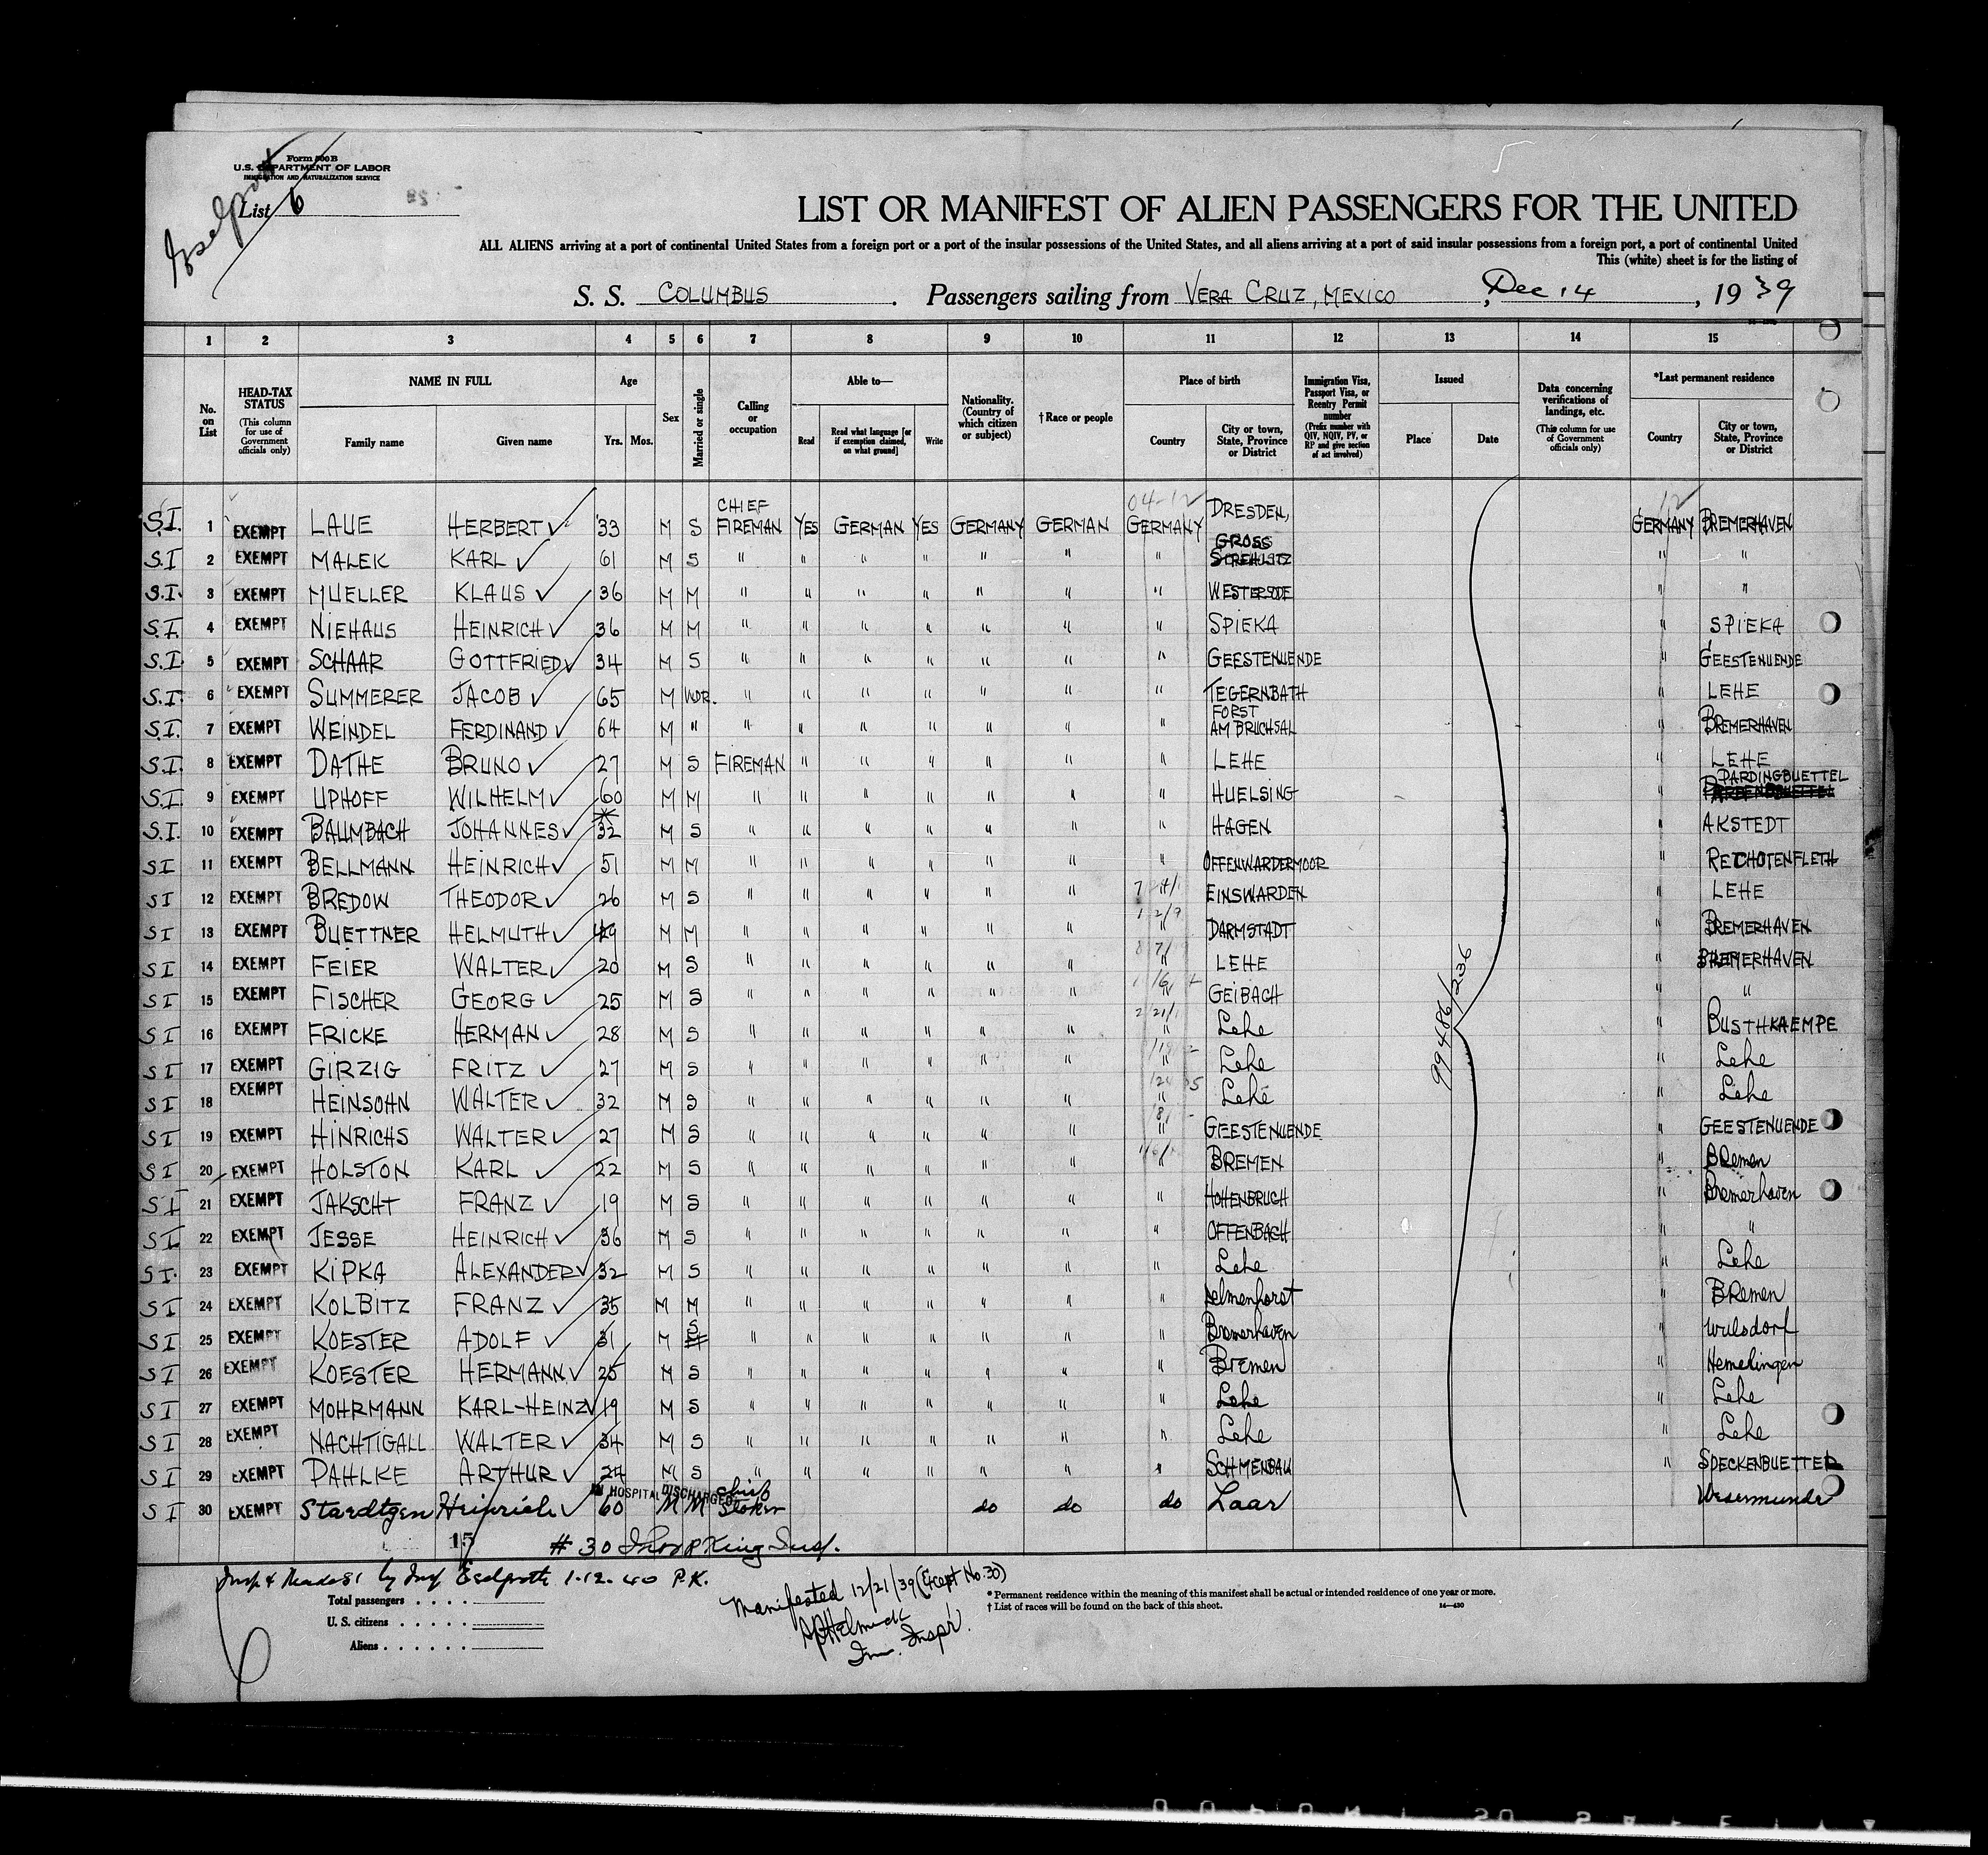 Form 500B
U.S. DEPARTMENT OF LABOR
IMMIGRATION AND NATURALIZATION SERVICE
List 6
LIST OR MANIFEST OF ALIEN PASSENGERS FOR THE UNITED
ALL ALIENS arriving at a port of continental United States from a foreign port or a port of the insular possessions of the United States, and all aliens arriving at a port of said insular possessions from a foreign port, a port of continental United
This (white) sheet is for the listing of
S. S. COLUMBUS. Passengers sailing from VERA CRUZ, MEXICO, Dec 14, 1939
1 2 3 4 5 6 7 8 9 10 11 12 13 14 15
No. on List
HEAD-TAX STATUS (This column for use of Government officials only)
NAME IN FULL Family name Given name
Age Yrs. Mos.
Sex
Married or single
Calling or occupation
Able to— Read Read what language [or if exemption claimed, on what ground] Write
Nationality. (Country of which citizen or subject)
†Race or people
Place of birth Country City or town, State, Province or District
Immigration Visa, Passport Visa, or Reentry Permit number (Prefix number with QIV, NQIV, PV, or RP and give section of act involved)
Issued Place Date
Data concerning verifications of landings, etc. (This column for use of Government officials only)
*Last permanent residence Country City or town, State, Province or District
04-12
S.I. 1 EXEMPT LAUE HERBERT 33 M S CHIEF FIREMAN YES GERMAN YES GERMANY GERMAN GERMANY DRESDEN, GERMANY BREMERHAVEN
S.I 2 EXEMPT MALEK KARL 61 M S " " " " " " " GROSS STREHLITZ " "
S.I. 3 EXEMPT MUELLER KLAUS 36 M M " " " " " " " WESTERSODE " "
S.I. 4 EXEMPT NIEHAUS HEINRICH 36 M M " " " " " " " SPIEKA " SPIEKA
S.I. 5 EXEMPT SCHAAR GOTTFRIED 34 M S " " " " " " " GEESTENUENDE " GEESTENUENDE
S.I. 6 EXEMPT SUMMERER JACOB 65 M WDR. " " " " " " " TEGERNBATH " LEHE
S.I. 7 EXEMPT WEINDEL FERDINAND 64 M " " " " " " " " FORST AM BRUCHSAL " BREMERHAVEN
S.I. 8 EXEMPT DATHE BRUNO 27 M S FIREMAN " " " " " " LEHE " LEHE
S.I. 9 EXEMPT UPHOFF WILHELM 60 M M " " " " " " " HUELSING " PARDINGBUETTEL
S.I. 10 EXEMPT BAUMBACH JOHANNES 32 M S " " " " " " " HAGEN " AKSTEDT
SI 11 EXEMPT BELLMANN HEINRICH 51 M M " " " " " " " OFFENWARDERMOOR " RECHOTENFLETH
SI 12 EXEMPT BREDOW THEODOR 26 M S " " " " " " " EINSWARDEN " LEHE
SI 13 EXEMPT BUETTNER HELMUTH 49 M M " " " " " " " DARMSTADT " BREMERHAVEN
SI 14 EXEMPT FEIER WALTER 20 M S " " " " " " " LEHE " BREMERHAVEN
SI 15 EXEMPT FISCHER GEORG 25 M S " " " " " " " GEIBACH " "
SI 16 EXEMPT FRICKE HERMAN 28 M S " " " " " " " Lehe " BUSTHKAEMPE
SI 17 EXEMPT GIRZIG FRITZ 27 M S " " " " " " " Lehe " Lehe
SI 18 EXEMPT HEINSOHN WALTER 32 M S " " " " " " " Lehe " Lehe
SI 19 EXEMPT HINRICHS WALTER 27 M S " " " " " " " GEESTENUENDE " GEESTENUENDE
SI 20 EXEMPT HOLSTON KARL 22 M S " " " " " " " BREMEN " Bremen
SI 21 EXEMPT JAKSCHT FRANZ 19 M S " " " " " " " HOHENBRUCH " Bremerhaven
SI 22 EXEMPT JESSE HEINRICH 36 M S " " " " " " " OFFENBACH " "
SI. 23 EXEMPT KIPKA ALEXANDER 32 M S " " " " " " " Lehe " Lehe
SI 24 EXEMPT KOLBITZ FRANZ 35 M M " " " " " " " Delmenhorst " Bremen
SI 25 EXEMPT KOESTER ADOLF 31 M S " " " " " " " Bremerhaven " Wulsdorf
SI 26 EXEMPT KOESTER HERMANN 25 M S " " " " " " " Bremen " Hemelingen
SI 27 EXEMPT MOHRMANN KARL-HEINZ 19 M S " " " " " " " Lehe " Lehe
SI 28 EXEMPT NACHTIGALL WALTER 34 M S " " " " " " " Lehe " Lehe
SI 29 EXEMPT PAHLKE ARTHUR 24 M S " " " " " " " SCHMENBAU " SPECKENBUETTEL
IN HOSPITAL DISCHARGED
SI 30 EXEMPT Staedtgen Heinrich 60 M M Chief Stoker do do do Laar Wesermunde
99486/236
15
#30 King Insp.
Insp Eselgroth 1-12-40 P.K.
Manifested 12/21/39 (Except No. 30)
Imm. Inspr.
Total passengers
U. S. citizens
Aliens
*Permanent residence within the meaning of this manifest shall be actual or intended residence of one year or more.
†List of races will be found on the back of this sheet.
14—430